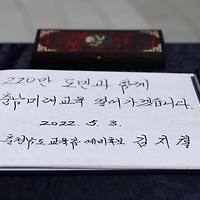 220만 도민과 함께
충남미래교육 열어가겠습니다.
2022. 5. 3.
충청남도교육감 예비후보 김지철